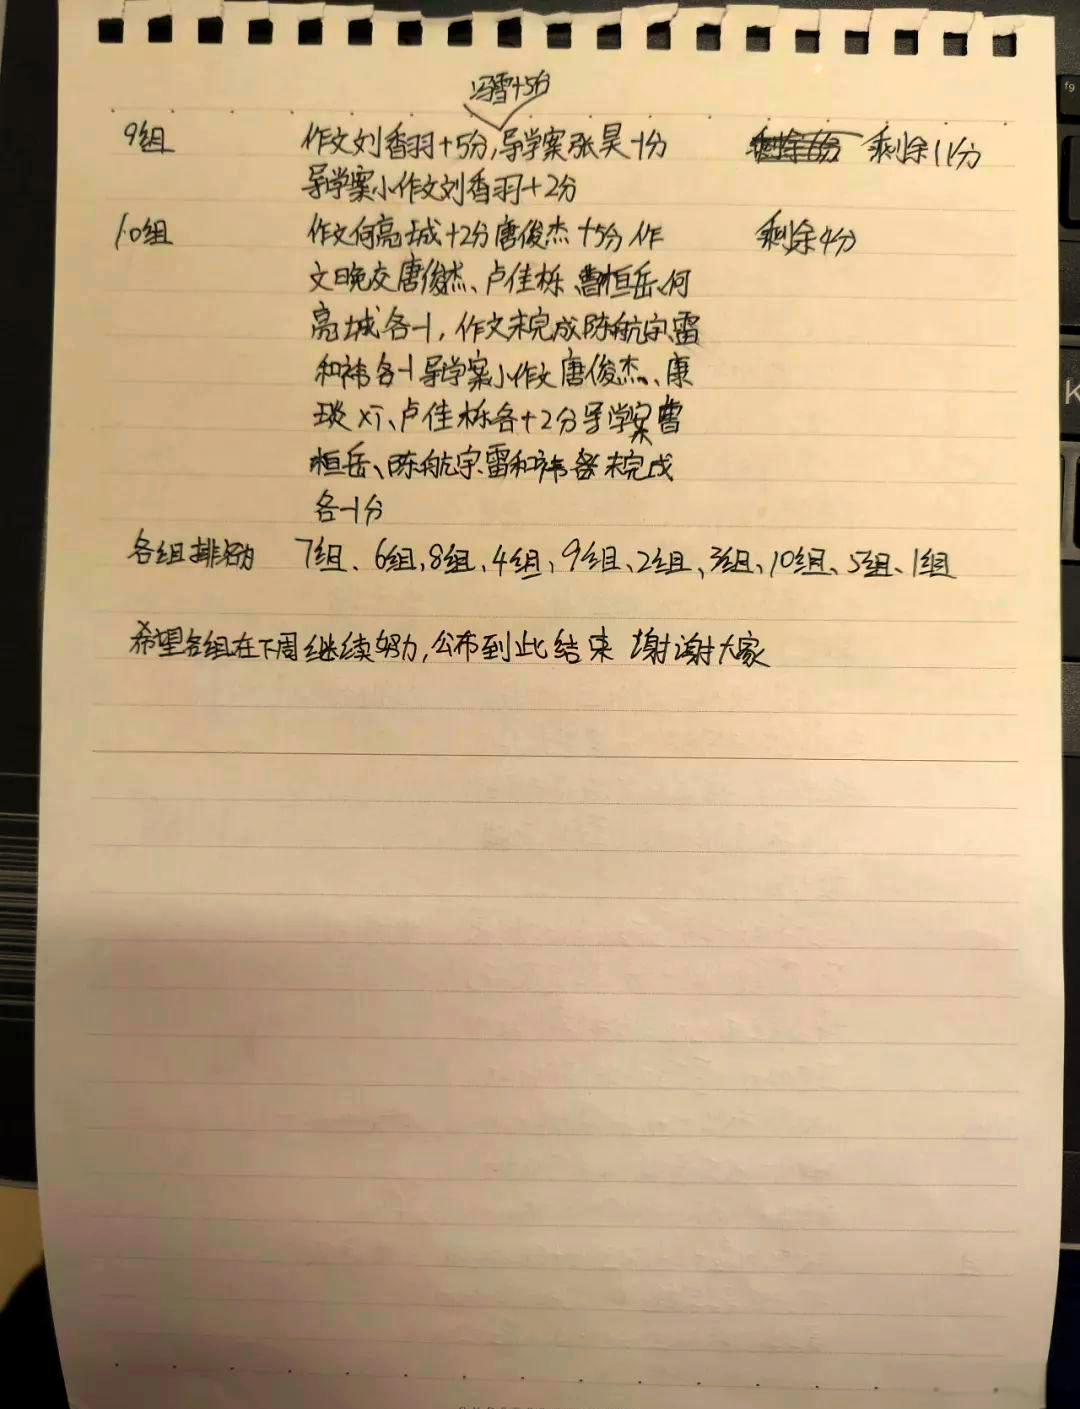 冯雪+5分
9组 作文刘香羽+5分,导学案张昊-1分 剩余11分
导学案小作文刘香羽+2分
10组 作文何亮城+2分唐俊杰+5分 作 剩余4分
文晚交唐俊杰、卢佳栎、曹桓岳、何
亮城各-1,作文未完成陈航宇、雷
和祎各-1导学案小作文唐俊杰、康
琰、卢佳栎各+2分导学案曹
桓岳、陈航宇、雷和祎未完成
各-1分
各组排名为 7组、6组,8组、4组、9组、2组、3组、10组、5组、1组
希望各组在下周继续努力,公布到此结束 谢谢大家